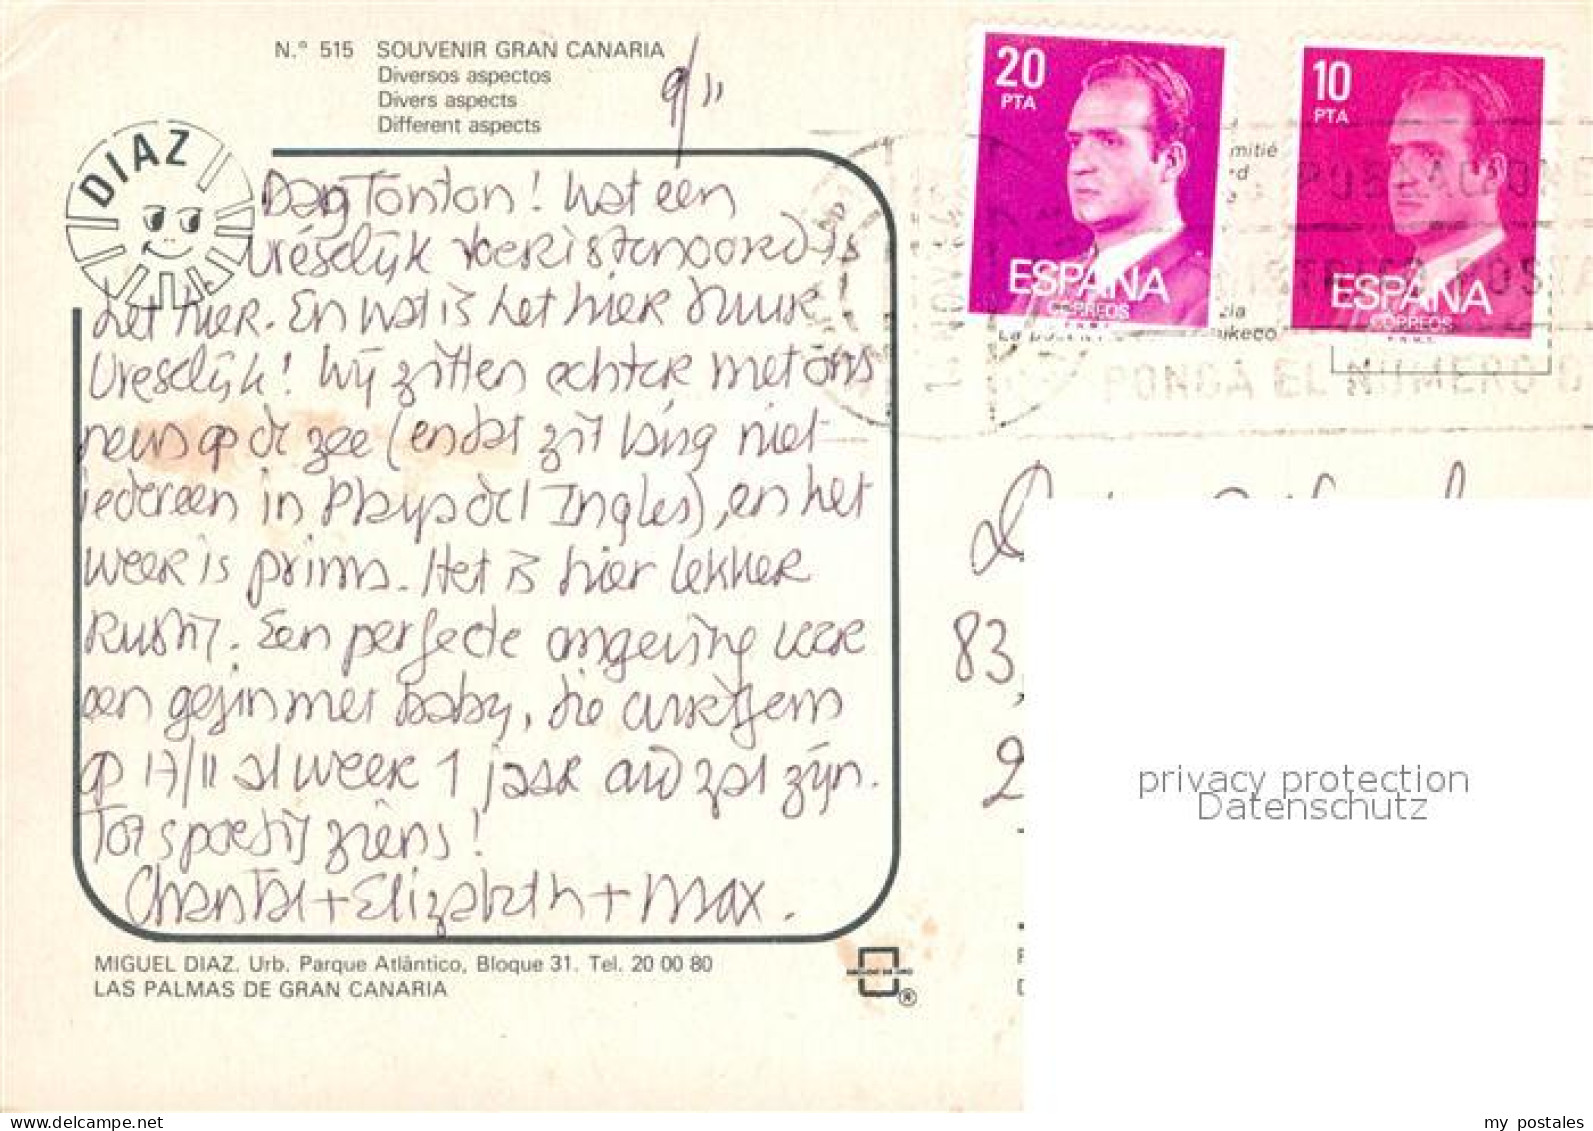 N.° 515 SOUVENIR GRAN CANARIA
Diversos aspectos
Divers aspects
Different aspects
9/11
DIAZ
Dag Tonton! Wat een
vreselijk toeristenoord is
het hier. En wat is het hier duur!
Vreselijk! Wij zitten echter met ons
neus op de zee (en dat zit lang niet
iedereen in Playa del Ingles), en het
weer is prima. Het is hier lekker
rustig. Een perfecte omgeving voor
een gezin met baby, die
op 17/11 al weer 1 jaar oud zal zijn.
Tot spoedig ziens!
Chantal + Elizabeth + Max.
MIGUEL DIAZ. Urb. Parque Atlântico, Bloque 31. Tel. 20 00 80
LAS PALMAS DE GRAN CANARIA
®
20
PTA
ESPAÑA
CORREOS
F.N.M.T.
10
PTA
ESPAÑA
CORREOS
F.N.M.T.
mitié
NOV
POSTA
PONGA EL NUMERO D
83,
2
privacy protection
Datenschutz
my postales